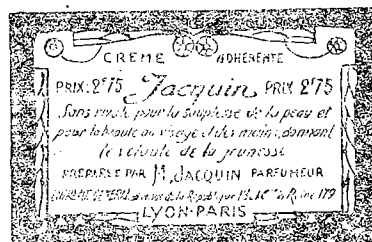 CREME ADHÉRENTE
PRIX: 2f75 Jacquin PRIX 2f75
Sans rivale pour la souplesse de la peau et
pour la beauté du visage et des mains, donnant
le velouté de la jeunesse
PRÉPARÉE PAR M. JACQUIN PARFUMEUR
de la République
LYON-PARIS